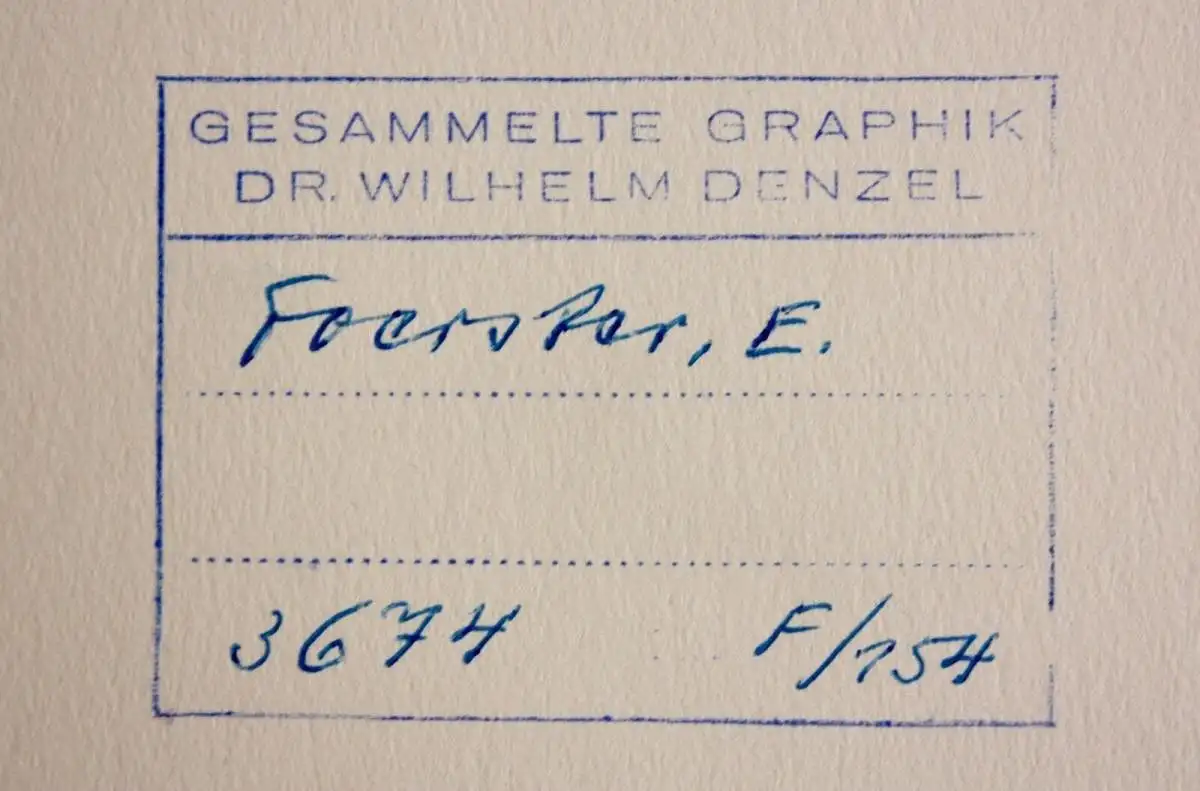 GESAMMELTE GRAPHIK
DR. WILHELM DENZEL
Foerster, E.
3674 F/154